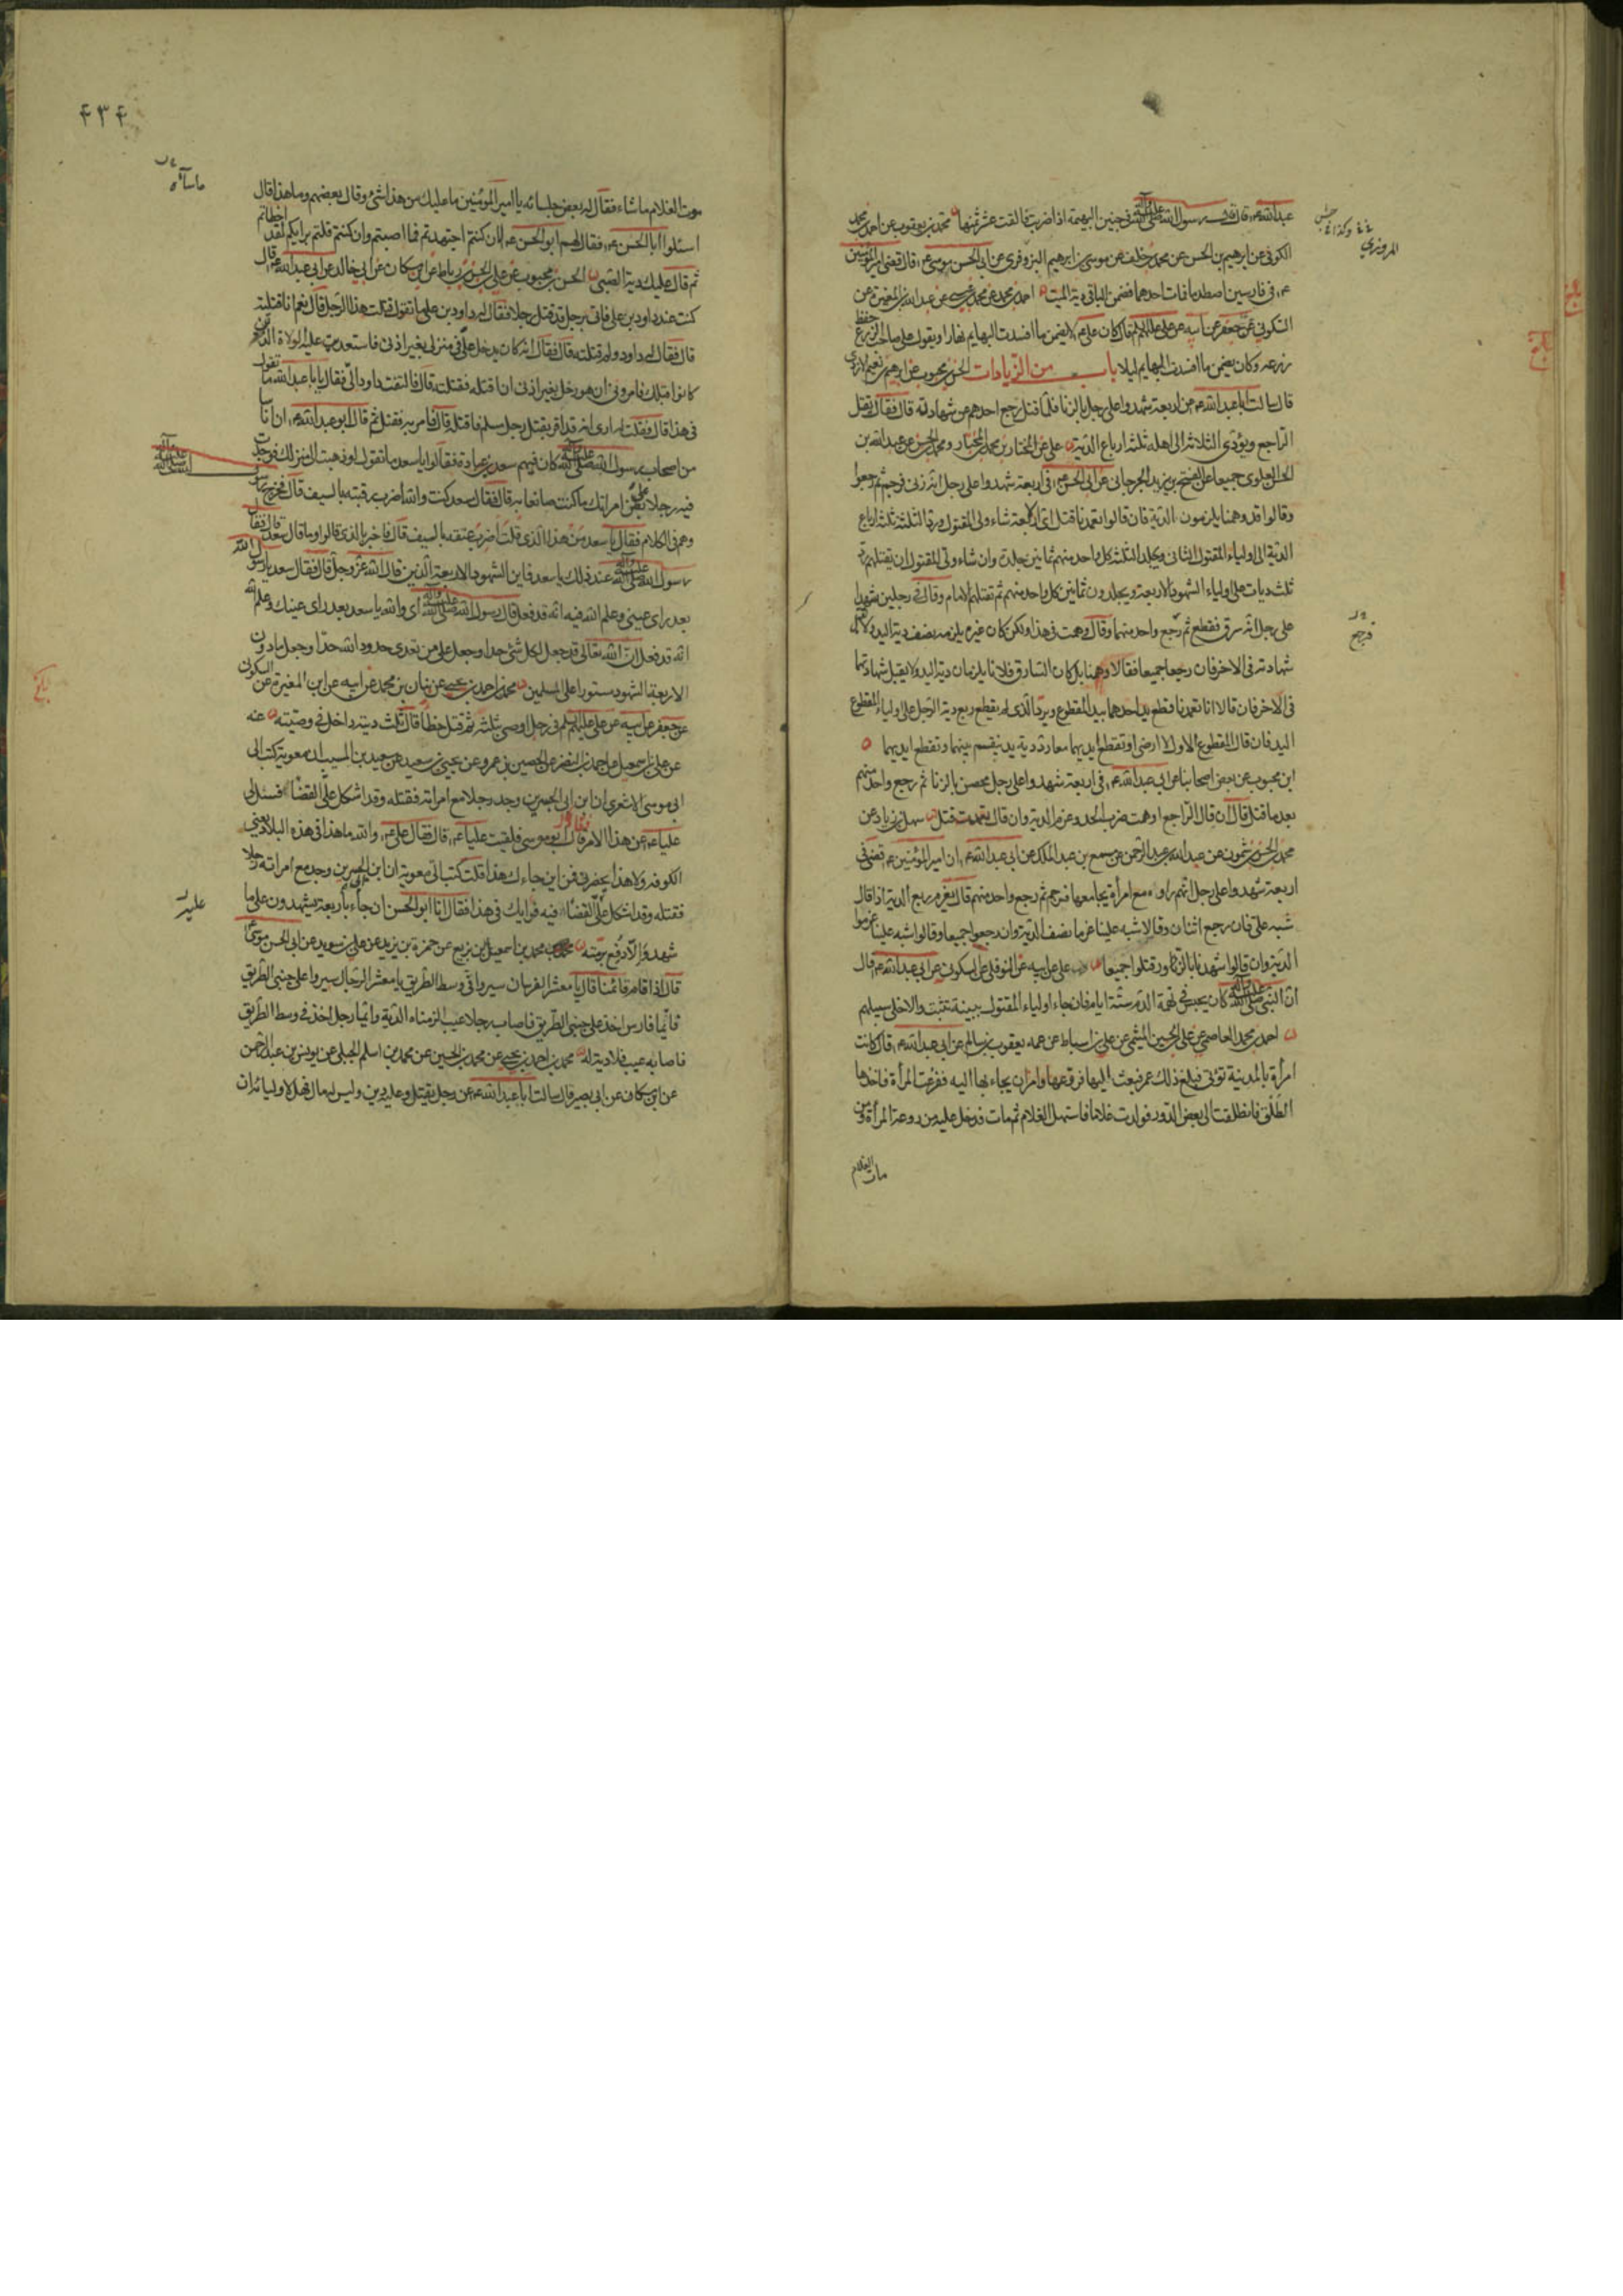 عبد الله ع قال قضى رسول الله صلى الله عليه وآله في جنين البهيمة اذا ضربت فالقت عشر ثمنها محمد بن يعقوب عن احمد بن محمد
الكوفي عن ابرهيم بن الحسن عن محمد بن خلف عن موسى بن ابرهيم البزوفري عن ابي الحسن موسى ع قال قضى امير المؤمنين
ع في فارسين اصطدما فمات احدهما فضمن الباقي دية الميت احمد بن محمد عن محمد بن عيسى عن عبد الله بن المغيرة عن
السكوني عن جعفر عن ابيه عن علي عليه السلام قال كان علي ع لا يضمن ما افسدت البهايم نهارا ويقول على صاحب الزرع حفظ
زرعه وكان يضمن ما افسدت البهايم ليلا باب من الزيادات الحسن بن محبوب عن ابرهيم بن نعيم الازدي
قال سالت ابا عبد الله ع عن اربعة شهدوا على رجل بالزنا فلما قتل رجع احدهم عن شهادته قال فقال يقتل
الراجع ويؤدي الثلاثة الى اهله ثلثة ارباع الدية علي عن المختار بن محمد بن المختار ومحمد بن الحسن عن عبد الله بن
الحسن العلوي جميعا عن الفتح بن يزيد الجرجاني عن ابي الحسن ع في اربعة شهدوا على رجل انه زنى فرجم ثم رجعوا
وقالوا قد وهمنا يلزمون الدية فان قالوا تعمدنا قتل اي الاربعة شاء ولي المقتول ورد الثلثة ثلثة ارباع
الدية الى اولياء المقتول الثاني ويجلد الثلثة كل واحد منهم ثمانين جلدة وان شاء ولي المقتول ان يقتلهم رد
ثلث ديات على اولياء الشهود الاربعة ويجلدون ثمانين كل واحد منهم ثم تقتلهم الامام وقال في رجلين شهدا
على رجل انه سرق فقطع ثم رجع واحد منهما وقال وهمت في هذا ولكن كان غيره يلزمه نصف دية اليد ولا تقبل
شهادته في الاخر فان رجعا جميعا فقالا وهمنا بل كان السارق فلانا يلزمان دية اليد ولا يقبل شهادتهما
في الاخر فان قالا انا تعمدنا قطع يد احدهما بيد المقطوع ويرد الذي لم يقطع ربع دية الرجل على اولياء المقطوع
اليد فان قال المقطوع الاول لا ارضى او تقطع ايديهما معا رد دية يد فيقسم بينهما وتقطع ايديهما
ابن محبوب عن بعض اصحابنا عن ابي عبد الله ع في اربعة شهدوا على رجل محصن بالزنا ثم رجع واحد منهم
بعد ما قتل قال ان قال الراجع اوهمت ضرب الحد وغرم الدية وان قال تعمدت قتل سهل بن زياد عن
محمد بن الحسن بن شمون عن عبد الله بن عبد الرحمن عن مسمع بن عبد الملك عن ابي عبد الله ع ان امير المؤمنين ع قضى في
اربعة شهدوا على رجل انهم راوه مع امرأة يجامعها فرجم ثم رجع واحد منهم قال يغرم ربع الدية اذا قال
شبه علي فان رجع اثنان وقالا شبه علينا غرما نصف الدية وان رجعوا جميعا وقالوا شبه علينا غرموا
الدية وان قالوا شهدنا بالزور قتلوا جميعا علي عن ابيه عن النوفلي عن السكوني عن ابي عبد الله ع قال
ان النبي صلى الله عليه وآله كان يحبس في تهمة الدم ستة ايام فان جاء اولياء المقتول ببينة تثبت والا خلى سبيلهم
احمد بن محمد العاصمي عن علي بن الحسين الميثمي عن علي بن اسباط عن عمه يعقوب بن سالم عن ابي عبد الله ع قال كانت
امرأة بالمدينة تؤتى فبلغ ذلك عمر فبعث اليها فروعها وامر ان يجاء بها اليه ففزعت المرأة فاخذها
الطلق فانطلقت الى بعض الدور فولدت غلاما فاستهل الغلام ثم مات فدخل عليه من روعة المرأة ومن
المروزي
وكذا
فرجع
مات الغلام
٤٣٤
موت الغلام ما شاء فقال له بعض جلسائه يا امير المؤمنين ما عليك من هذا شئ وقال بعضهم وما هذا قال
اسئلوا ابا الحسن ع فقال لهم ابو الحسن ع لان كنتم اجتهدتم فما اصبتم وان كنتم قلتم برايكم لقد اخطاتم
ثم قال عليك دية الصبي الحسن بن محبوب عن علي بن الحسن بن رباط عن ابن مسكان عن ابي خالد عن ابي عبد الله ع قال
كنت عند داود بن علي فاتي برجل قد قتل رجلا فقال له داود بن علي ما تقول قتلت هذا الرجل قال نعم انا قتلته
قال فقال له داود ولم قتلته قال فقال انه كان يدخل علي في منزلي بغير اذني فاستعديت عليه الولاة الذين
كانوا قبلك فامروني ان هو دخل بغير اذني ان اقتله فقتلته قال فالتفت داود الي فقال يا با عبد الله ما تقول
في هذا قال فقلت له ارى انه قد اقر بقتل رجل مسلم فاقتله قال فامر به فقتل ثم قال ابو عبد الله ع ان اناسا
من اصحاب رسول الله صلى الله عليه وآله كان فيهم سعد بن عبادة فقالوا يا سعد ما تقول لو ذهبت الى منزلك فوجدت
فيه رجلا على بطن امراتك ما كنت صانعا به قال فقال سعد كنت والله اضرب رقبته بالسيف قال فخرج رسول
وهم في الكلام فقال يا سعد من هذا الذي قلت اضرب عنقه بالسيف قال فاخبر بالذي قالوا وما قال سعد قال فقال
رسول الله صلى الله عليه وآله عند ذلك يا سعد فاين الشهود الاربعة الذين قال الله عز وجل قال فقال سعد يا رسول الله
بعد راي عيني وعلم الله فيه انه قد فعل قال رسول الله صلى الله عليه وآله اي والله يا سعد بعد راي عينك وعلم الله
انه قد فعل ان الله تعالى قد جعل لكل شئ حدا وجعل على من تعدى حدود الله حدا وجعل ما دون
الاربعة الشهود مستورا على المسلمين محمد بن احمد بن يحيى عن بنان بن محمد عن ابيه عن ابن المغيرة عن السكوني
عن جعفر عن ابيه عن علي عليهم السلم في رجل اوصى بثلثه ثم قتل خطأ قال ثلث ديته داخل في وصيته عنه
عن علي بن اسمعيل عن احمد بن النضر عن الحصين بن عمرو عن يحيى بن سعيد عن سعيد بن المسيب ان معوية كتب الى
ابي موسى الاشعري ان ابن ابي الجسرين وجد رجلا مع امراته فقتله وقد اشكل علي القضاء فسئل لي
عليا ع عن هذا الامر قال ابو موسى فلقيت عليا ع قال فقال علي ع والله ما هذا في هذه البلاد يعني
الكوفة ولا هذا بحضرتي فمن اين جاءك هذا قلت كتب الي معوية ان ابن ابي الجسرين وجد مع امراته رجلا
فقتله وقد اشكل علي القضاء فيه فرايك في هذا فقال انا ابو الحسن ان جاء باربعة يشهدون على ما
شهد والا دفع برمته محمد بن احمد عن محمد بن اسمعيل بن بزيع عن حمزة بن يزيد عن علي بن سويد عن ابي الحسن موسى ع
قال اذا قام قائمنا قال يا معشر الفرسان سيروا في وسط الطريق يا معشر الرجال سيروا على جنبي الطريق
فايما فارس اخذ على جنبي الطريق فاصاب رجلا عيب الزمناه الدية وايما رجل اخذ في وسط الطريق
فاصابه عيب فلا دية له محمد بن احمد بن يحيى عن محمد بن الحسين عن محمد بن اسلم الجبلي عن يونس بن عبد الرحمن
عن ابن مسكان عن ابي بصير قال سالت ابا عبد الله ع عن رجل يقتل وعليه دين وليس له مال فهل لاوليائه ان
ما ساءه
صلى الله عليه وآله
عليه